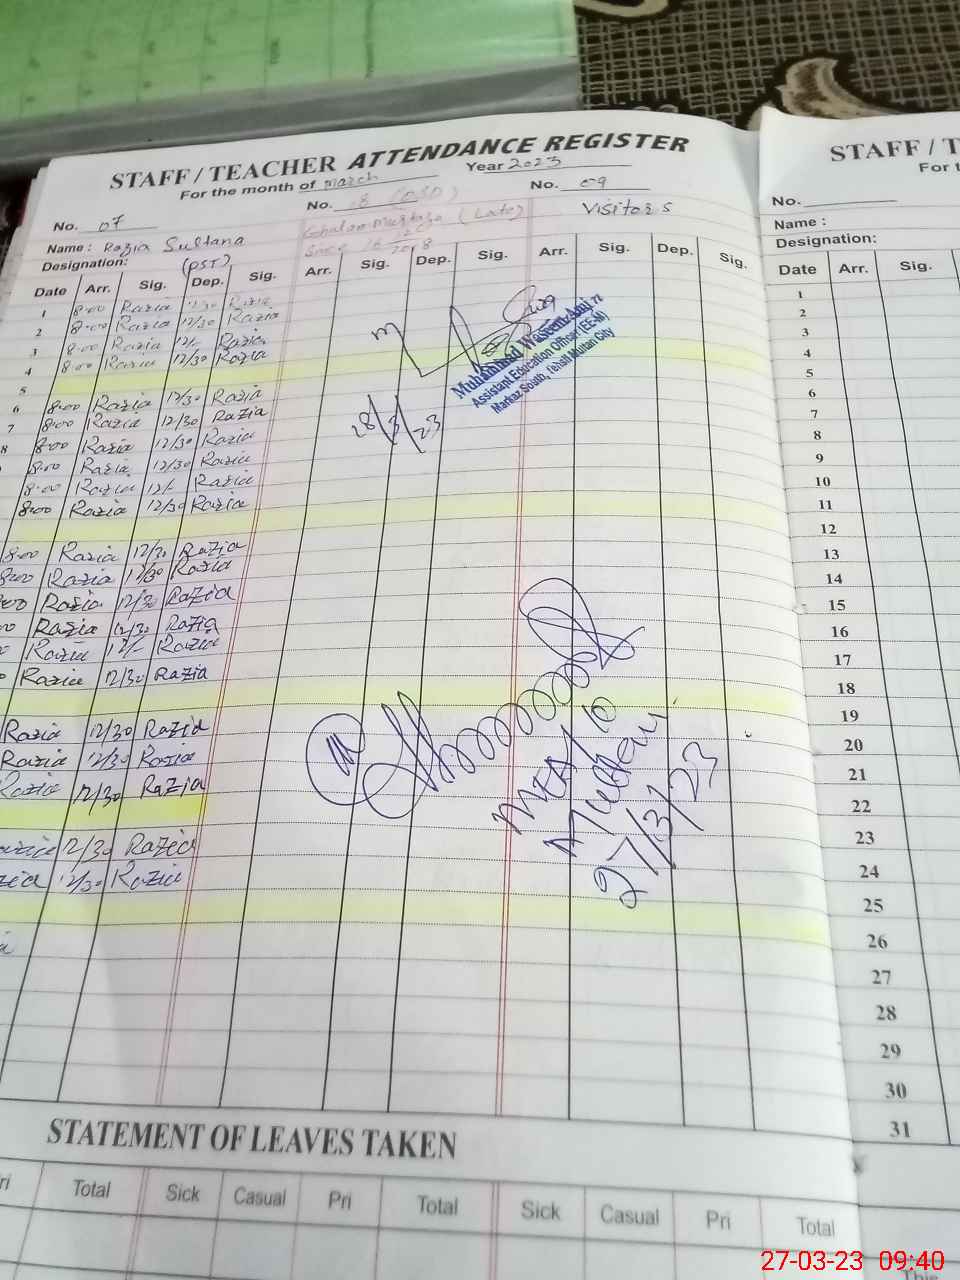 STAFF / TEACHER ATTENDANCE REGISTER
For the month of March Year 2023
No. 07
Name : Razia Sultana
Designation: (PST)
No. 08 (OSD)
Ghulam Murtaza (Late)
Since
2018
No. 09
Visitors
Date Arr. Sig. Dep. Sig. Arr. Sig. Dep. Sig. Arr. Sig. Dep. Sig.
1 8.00 Razia 12/30 Razia
2 8.00 Razia 12/30 Razia
3 8.00 Razia 12/- Razia
4 8.00 Razia 12/30 Razia
5
6 8.00 Razia 12/30 Razia
7 8.00 Razia 12/30 Razia
8 8.00 Razia 12/30 Razia
8.00 Razia 12/30 Razia
8.00 Razia 12/- Razia
8.00 Razia 12/30 Razia
8.00 Razia 12/30 Razia
8.00 Razia 12/30 Razia
00 Razia 12/30 Razia
Razia 12/30 Razia
Razia 12/- Razia
Razia 12/30 Razia
Razia 12/30 Razia
Razia 12/30 Razia
Razia 12/30 Razia
Razia 12/30 Razia
12/30 Razia
Muhammad Waseem
Assistant Education Officer (EE-M)
Markaz South, Tehsil Multan City
28/3/23
MEA/10
27/3/23
STATEMENT OF LEAVES TAKEN
Pri Total Sick Casual Pri Total Sick Casual Pri Total
STAFF / T
For t
No.
Name :
Designation:
Date Arr. Sig.
1
2
3
4
5
6
7
8
9
10
11
12
13
14
15
16
17
18
19
20
21
22
23
24
25
26
27
28
29
30
31
This
27-03-23 09:40